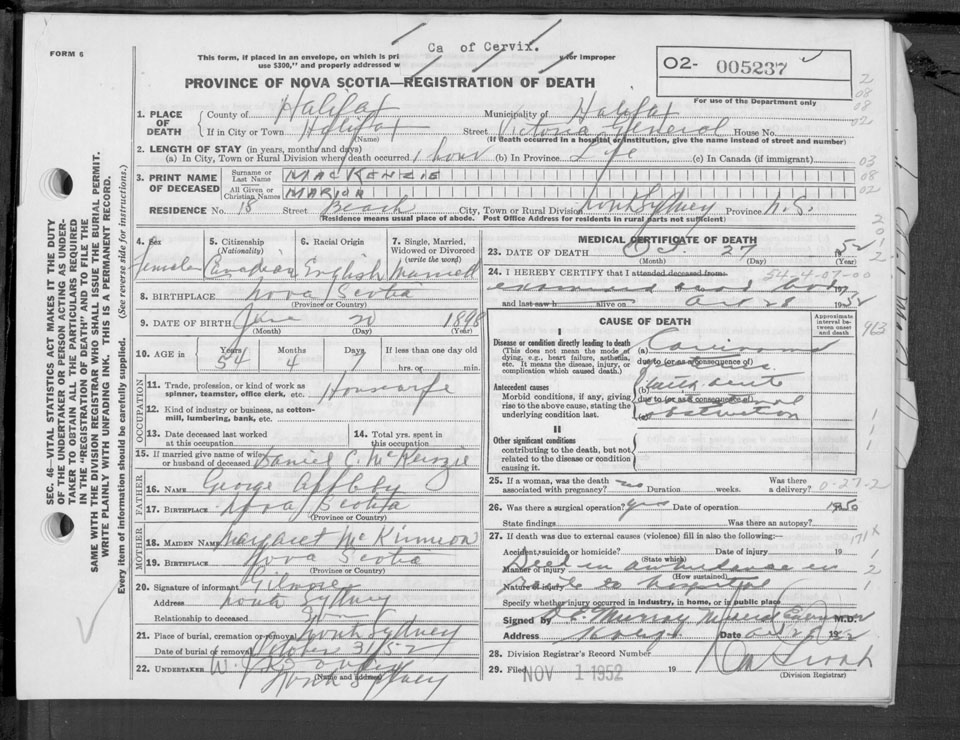 FORM 6
Ca of Cervix.
This form, if placed in an envelope, on which is pri
use $300," and properly addressed w
for improper
O2- 005237
For use of the Department only
PROVINCE OF NOVA SCOTIA—REGISTRATION OF DEATH
1. PLACE OF DEATH
County of Halifax Municipality of Halifax
If in City or Town Halifax Street Victoria General House No.
(Name) (If death occurred in a hospital or institution, give the name instead of street and number)
2. LENGTH OF STAY (in years, months and days)
(a) In City, Town or Rural Division where death occurred 1 hour (b) In Province Life (c) In Canada (if immigrant)
3. PRINT NAME OF DECEASED
Surname or Last Name MACKENZIE
All Given or Christian Names MARION
RESIDENCE No. 18 Street Beach City, Town or Rural Division North Sydney Province N.S.
(Residence means usual place of abode. Post Office Address for residents in rural parts not sufficient)
4. Sex Female
5. Citizenship (Nationality) Canadian
6. Racial Origin English
7. Single, Married, Widowed or Divorced (write the word) Married
8. BIRTHPLACE Nova Scotia
(Province or Country)
9. DATE OF BIRTH June 20 1898
(Month) (Day) (Year)
10. AGE in Years 54 Months 4 Days 7 If less than one day old
hrs. or min.
OCCUPATION
11. Trade, profession, or kind of work as spinner, teamster, office clerk, etc. Housewife
12. Kind of industry or business, as cotton-mill, lumbering, bank, etc.
13. Date deceased last worked at this occupation
14. Total yrs. spent in this occupation
15. If married give name of wife or husband of deceased Daniel C. McKenzie
FATHER
16. NAME George Appleby
17. BIRTHPLACE Nova Scotia
(Province or Country)
MOTHER
18. MAIDEN NAME Margaret McKinnon
19. BIRTHPLACE Nova Scotia
(Province or Country)
20. Signature of informant
Address North Sydney
Relationship to deceased
21. Place of burial, cremation or removal North Sydney
Date of burial or removal October 31/52
22. UNDERTAKER W. J.
North Sydney
(Name and address)
MEDICAL CERTIFICATE OF DEATH
23. DATE OF DEATH Oct 27 1952
(Month) (Day) (Year)
24. I HEREBY CERTIFY that I attended deceased from
54-4-07-00
examined dead body
and last saw h alive on Oct 28 1952
CAUSE OF DEATH
Approximate interval between onset and death
I
Disease or condition directly leading to death
(This does not mean the mode of dying, e.g., heart failure, asthenia, etc. It means the disease, injury, or complication which caused death.)
(a)
due to (or as consequence of)
Antecedent causes
Morbid conditions, if any, giving rise to the above cause, stating the underlying condition last.
(b) with acute
due to (or as a consequence of)
(c)
obstruction
II
Other significant conditions
contributing to the death, but not related to the disease or condition causing it.
25. If a woman, was the death associated with pregnancy? no Duration weeks. Was there a delivery?
26. Was there a surgical operation? yes Date of operation 1950
State findings Was there an autopsy?
27. If death was due to external causes (violence) fill in also the following:—
Accident, suicide or homicide? Date of injury 19
(State which)
Manner of injury Died in ambulance on
(How sustained)
Nature of injury route to hospital
Specify whether injury occurred in industry, in home, or in public place
Signed by D. E. Murray M.D.
Address Date Oct 1952
28. Division Registrar's Record Number
29. Filed NOV 1 1952 19
(Division Registrar)
SEC. 46—VITAL STATISTICS ACT MAKES IT THE DUTY
OF THE UNDERTAKER OR PERSON ACTING AS UNDER-
TAKER TO OBTAIN ALL THE PARTICULARS REQUIRED
IN THE "REGISTRATION OF DEATH" AND TO FILE THE
SAME WITH THE DIVISION REGISTRAR WHO SHALL ISSUE THE BURIAL PERMIT.
WRITE PLAINLY WITH UNFADING INK. THIS IS A PERMANENT RECORD.
Every item of information should be carefully supplied. (See reverse side for instructions.)